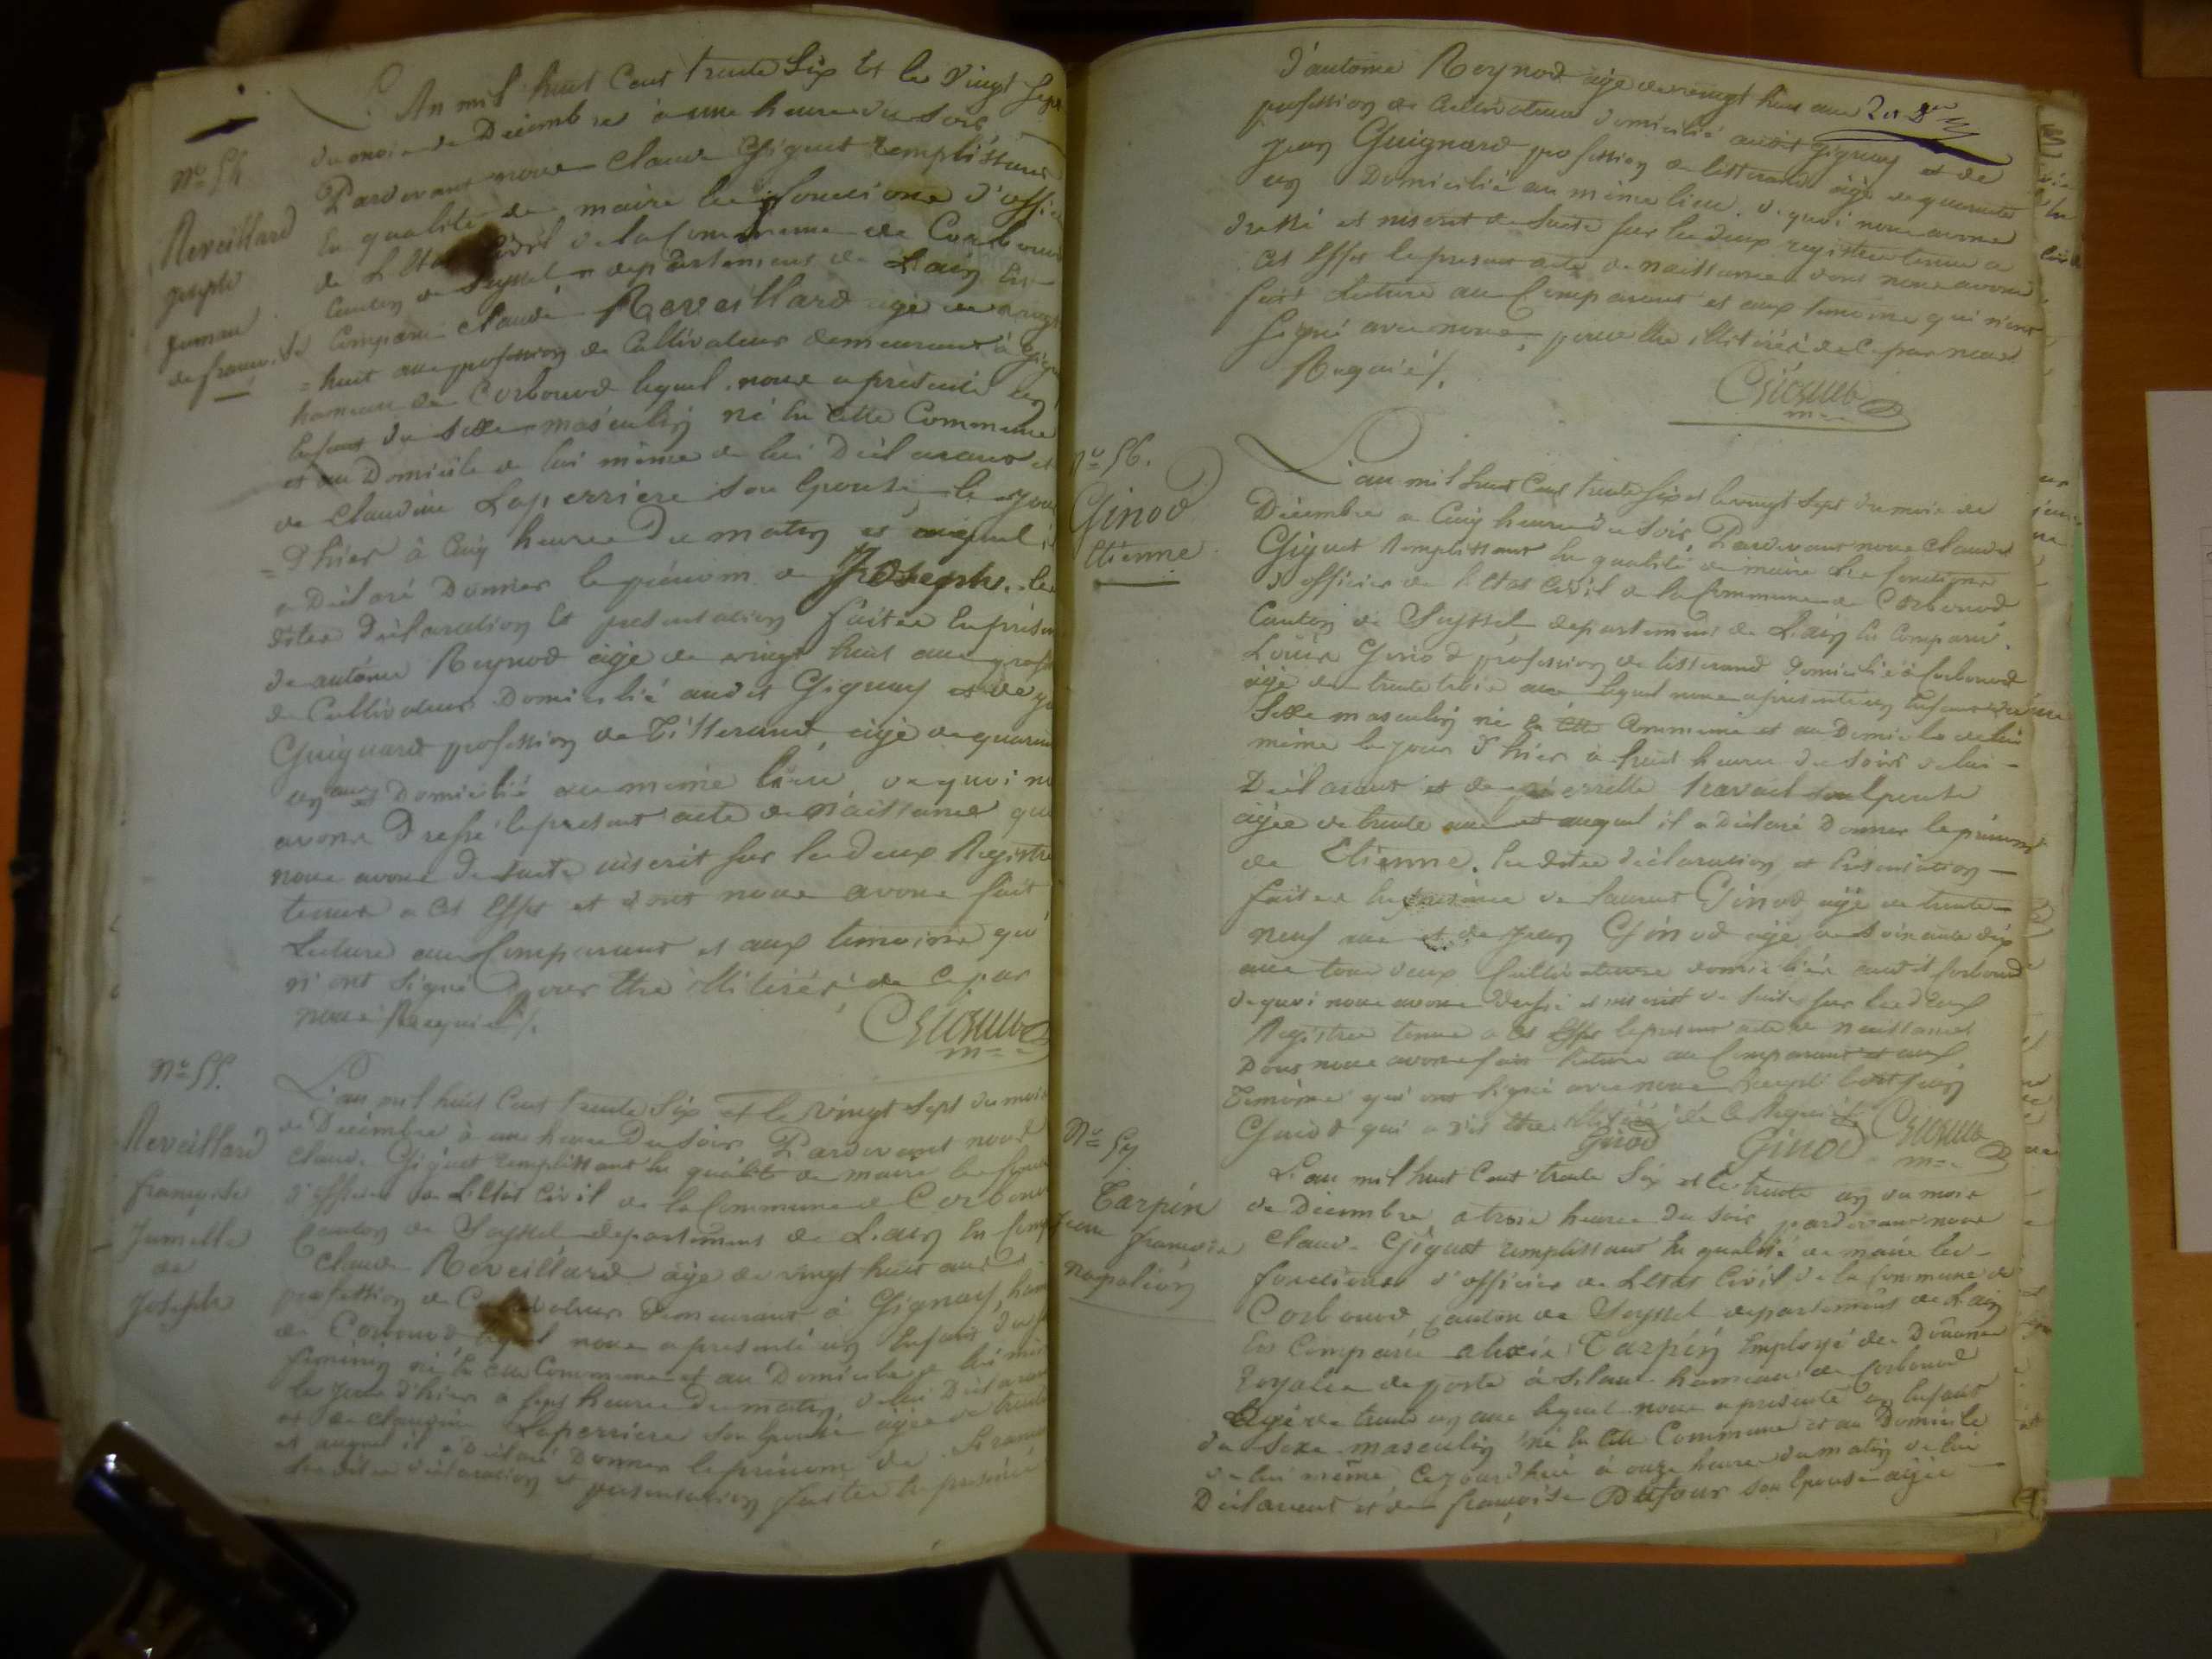 N° 54
Reveillard
joseph
jumau
de francoise
L'An mil huit Cent trente Six Et le vingt Sept
du mois de Décembre à une heure du soir
Pardevant nous Claude Giguet remplissant
la qualité de maire les fonctions d'offici
de L'Etat Civil de la Commune de Corbonod
Canton de Seyssel, département de L'ain Est
Comparu Claude Reveillard agé de vingt
= huit ans profession de Cultivateur demeurant à Gign
hameau de Corbonod lequel nous a présenté un
Enfant du Sexe masculin né En Cette Commune
et au Domicile de lui même de lui Déclarant et
de Claudine Laperriere son Epouse, le jour
= D'hier à Cinq heures Du matin et auquel il
a Déclaré Donner le prénom de Joseph. les
dites Déclaration Et présentation faites En présen
de antoine Reynod âgé de vingt huit ans profe
de Cultivateur Domicilié audit Gignay et de j
Guignard profession de Tisserand, âgé de quaran
un ans Domicilié au même lieu, de quoi n
avons Dressé le present acte de Naissance que
nous avons De suite inscrit sur les deux Registre
tenus a Cet Effet et dont nous avons fait
Lecture au Comparant et aux temoins qui
n'ont signé pour Etre illitérés de Ce par
nous Requis /.
Giguet
m=
N° 55.
Reveillard
françoise
jumelle
de
joseph
L'an mil huit Cent trente Six et le vingt Sept du mois
de Décembre à une heure Du soir Pardevant nous
Claude Giguet remplissant la qualité de maire les fonct
d'officier de L'Etat Civil de la Commune de Corbonod
Canton de Seyssel département de L'ain Est Comp
Claude Reveillard âgé de vingt huit ans
profession de Cultivateur Demeurant à Gignay, ham
de Corbonod lequel nous a présenté un Enfant Du s
féminin né En Cette Commune et au Domicile de lui mê
le jour D'hier a sept heures Du matin, de lui Déclarant
et de Claudine Laperriere son Epouse âgée de trente
et auquel il a Déclaré Donner le prénom de Franco
les dites Déclaration et présentation faites En présence
d'antoine Reynod âgé de vingt huit ans
profession de Cultivateur Domicilié audit Gignay et de
jean Guignard profession de tisserand âgé de quarante
un Domicilié au même lieu. de quoi nous avons
dressé et inscrit de suite sur les deux registres tenus a
Cet Effet le present acte de naissance dont nous avons
fait Lecture au Comparant et aux temoins qui n'ont
signé avec nous, pour Etre illitérés de Ce par nous
Requis /.
Giguet
m=
N° 56.
Ginod
Etienne
L'an mil huit Cent trente Six et le vingt Sept du mois de
Décembre a Cinq heures du soir, Pardevant nous Claude
Giguet Remplissant la qualité de maire Les fonctions
d'officier de L'Etat Civil de la Commune de Corbonod
Canton de Seyssel département de L'ain Est Comparu.
Louis Ginod profession de tisserand Domicilié à Corbonod
âgé de trente trois ans lequel nous a présenté un Enfant du
Sexe masculin né En Cette Commune et au Domicile de lui
même le jour D'hier à huit heures Du soir de lui -
Déclarant et de pierrette Travail son Epouse
âgée de trente ans et auquel il a Déclaré Donner le prénom
de Etienne. les dites déclaration et Présentation -
faites En présence de Laurent Ginod âgé de trente
neuf ans et de jean Ginod âgé de soixante dix
ans tous deux Cultivateurs domiciliés audit Corbonod
de quoi nous avons dressé et inscrit de suite sur les deux
Registres tenus a Cet Effet le present acte de naissance
Dont nous avons fait lecture au Comparant et aux
Temoins qui ont signé avec nous Excepté ledit jean
Ginod qui a dit Etre illitéré de Ce Requis /.
Ginod
Ginod
Giguet
m=
N° 57
Tarpin
jean françois
napoléon
L'an mil huit Cent trente Six et le trente un du mois
de Décembre, a trois heures Du soir, pardevant nous
Claude Giguet remplissant la qualité de maire les -
fonctions d'officier de L'Etat Civil de la Commune de
Corbonod Canton de Seyssel département de L'ain
Est Comparu alexis Tarpin Employé des Douanes
Royales de poste à Silan hameau de Corbonod
Agé de trente un ans lequel nous a présenté un Enfant
du Sexe masculin né En Cette Commune et au Domicile
de lui même Cejourd'hui à onze heures du matin de lui
Déclarant et de françoise Dufour son Epouse âgée